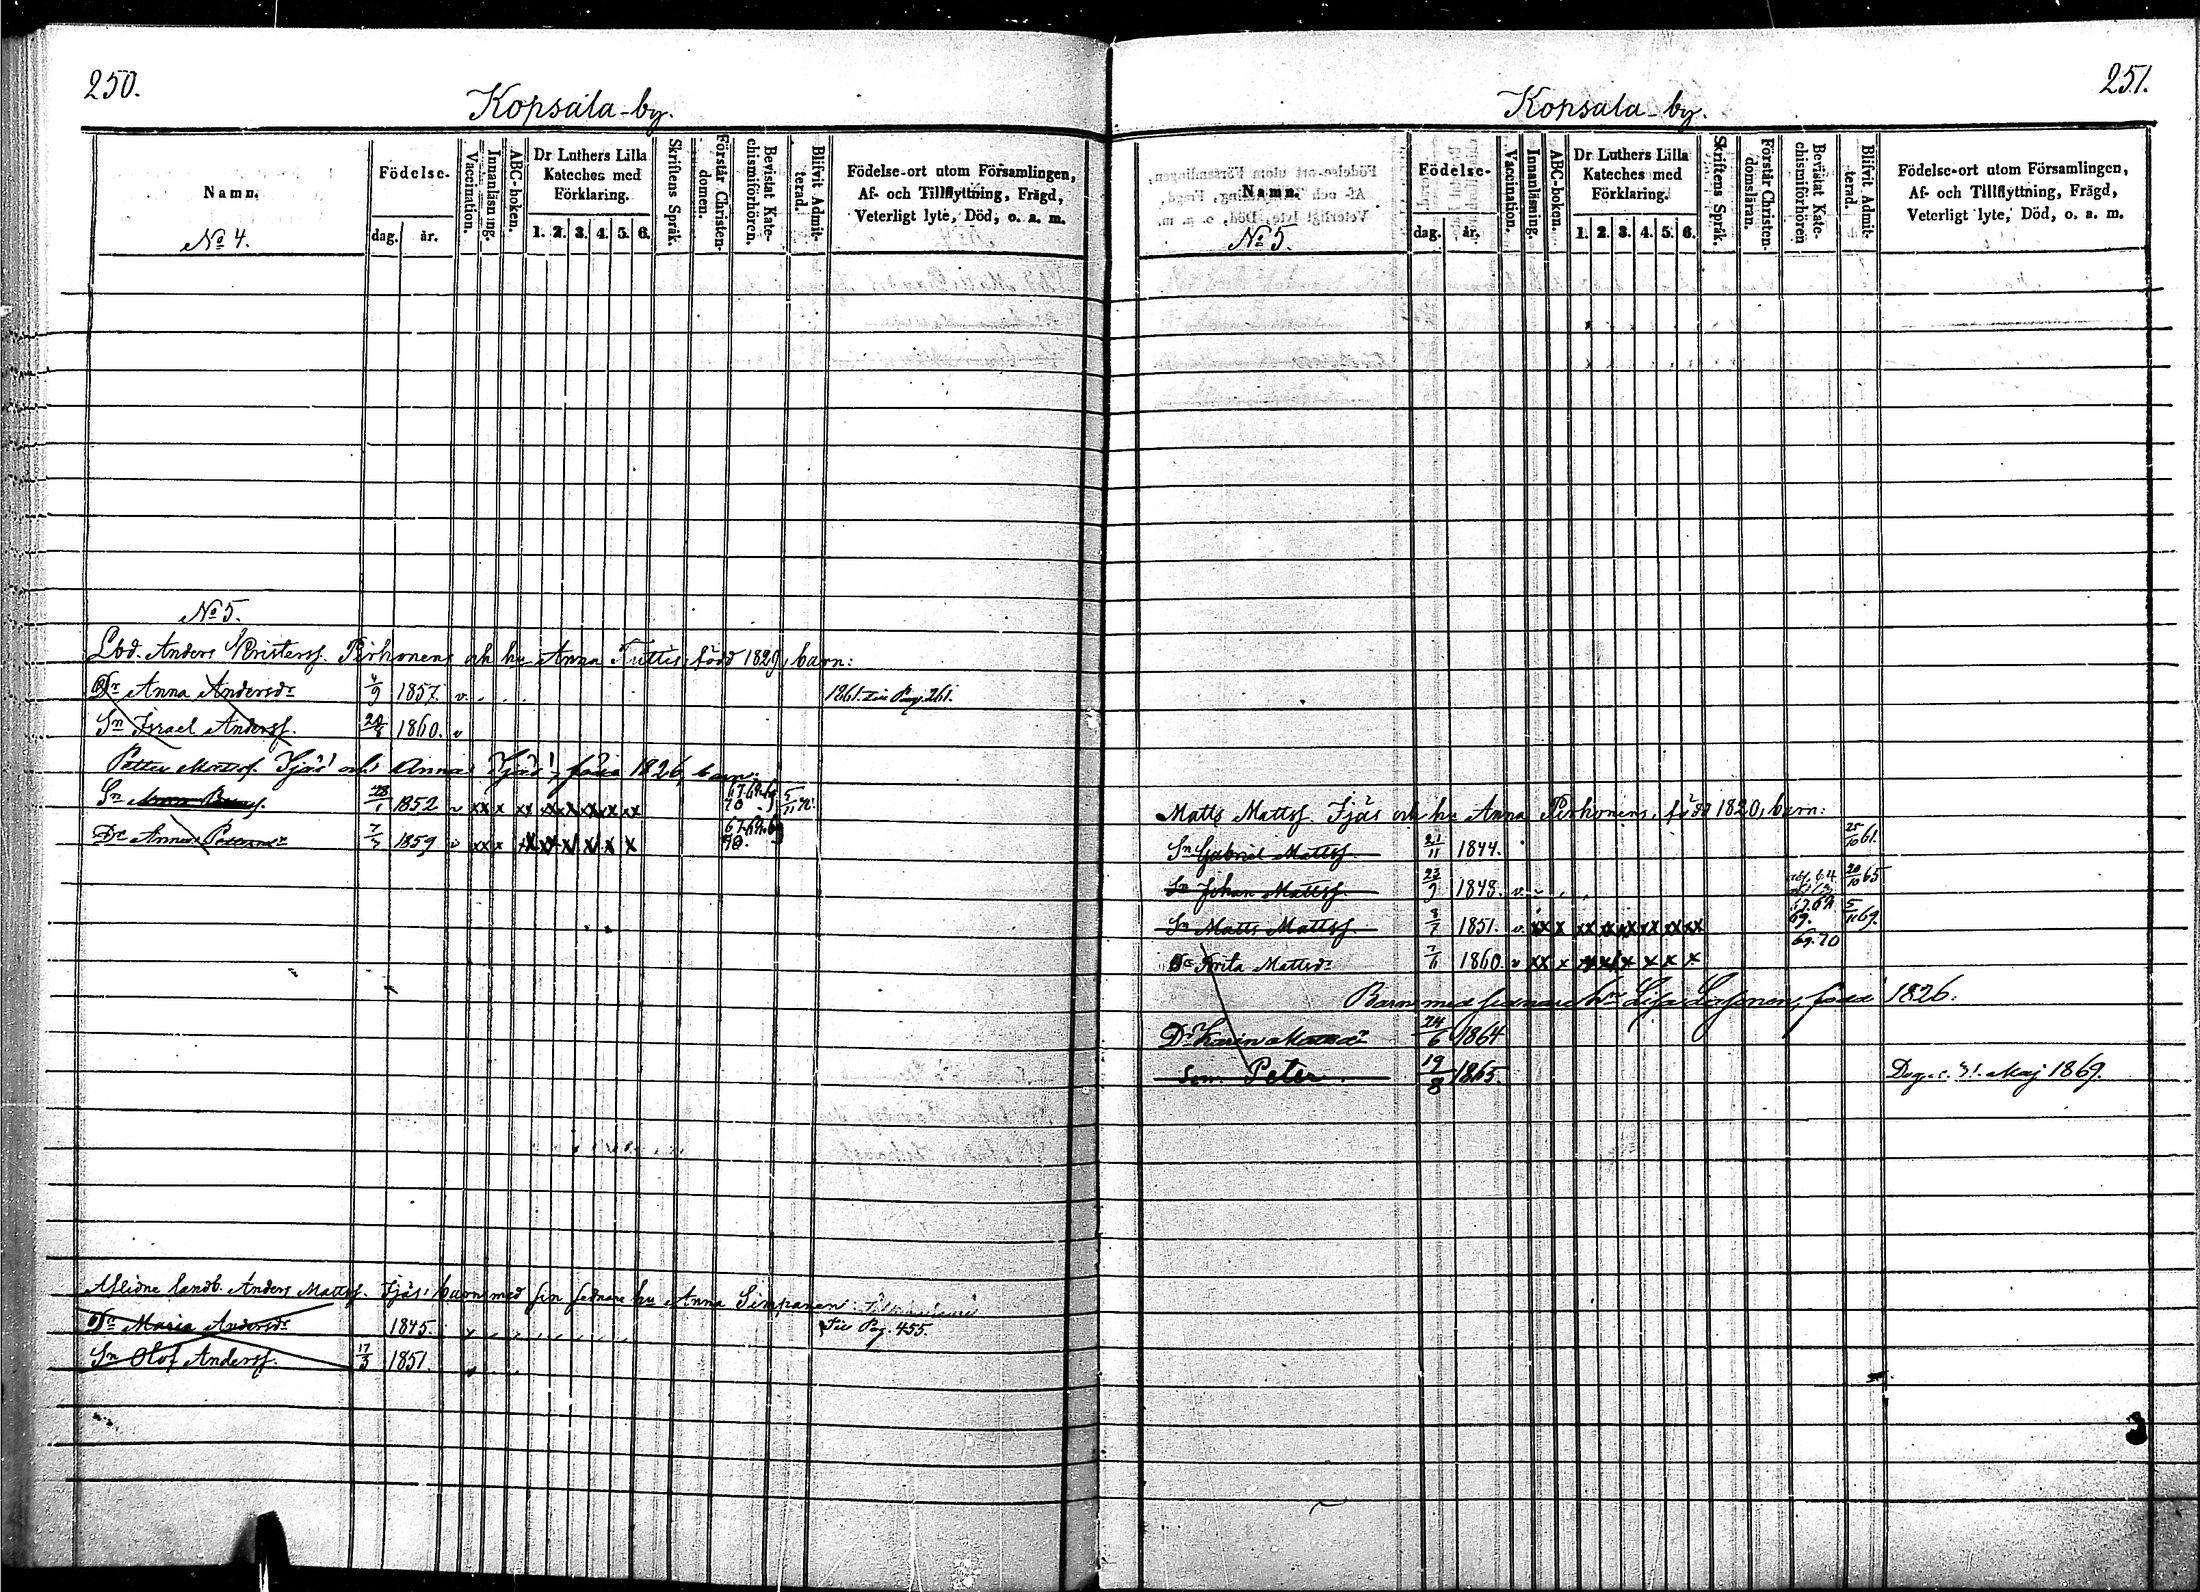 250.
Kopsala-by.
Namn.
No 4.
Födelse-
dag. år.
Vaccination.
Innanläsning.
ABC-boken.
Dr Luthers Lilla
Kateches med
Förklaring.
1. 2. 3. 4. 5. 6.
Skriftens Språk.
Förstår Christen-
domen.
Bevistat Kate-
chismiförhören.
Blifvit Admit-
terad.
Födelse-ort utom Församlingen,
Af- och Tillflyttning, Frägd,
Veterligt lyte, Död, o. a. m.
No 5.
Lbd. Anders Kristersf. Pirhonens och hu Anna Tuttis, född 1829, barn:
Dr Anna Andersdr 4/9 1857. v. 1861. Pag. 261.
Sn Israel Andersf. 1860. v
Petter Mattsf. Ijäs' och Anna Ijäs', född 1826, barn:
Sn 28/1 1852 v xx x xx x x x x x 67.68.69 70 5/11
Dr Anna 7/3 1859 v xx x x x x x x x 67.68.69 70.
Aflidne landb. Anders Mattsf. Ijäs' barn med sin sednare hu Anna Simpanen
Dr Maria Andersdr 1845. Pag. 455.
Sn Olof Andersf. 17/3 1851.
251.
Kopsala-by.
Namn.
No 5.
Födelse-
dag. år.
Vaccination.
Innanläsning.
ABC-boken.
Dr Luthers Lilla
Kateches med
Förklaring.
1. 2. 3. 4. 5. 6.
Skriftens Språk.
Förstår Christen-
domsläran.
Bevistat Kate-
chismiförhören
Blifvit Admit-
terad.
Födelse-ort utom Församlingen,
Af- och Tillflyttning, Frägd,
Veterligt lyte, Död, o. a. m.
Matts Mattsf. Ijäs och hu Anna Pirhonens, född 1820, barn:
Sn Gabriel Mattsf. 21/11 1844. 25/10 61.
Sn Johan Mattsf. 23/9 1848. v. 64 20/10 65
Sn Matts Mattsf. 8/7 1851. v. xx x xx xx xx xx xx xx 67.68 69. 5/11 69.
Dr Brita Mattsdr 7/11 1860 v xx x x x x x x x 69.70
Barn med sednare hun Lisa född 1826.
Dr Karin 24/6 1864
Son Peter 19/8 1865. 31. Maj 1869.